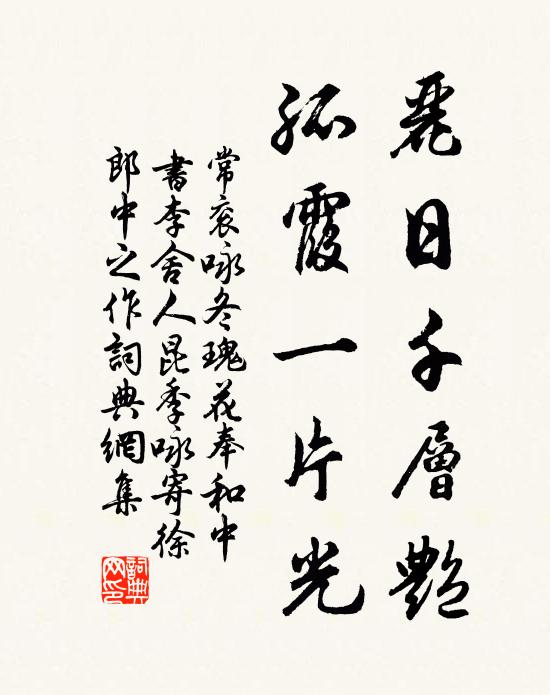 麗日千層艷
孤霞一片光
常袞咏冬瑰花奉和中
書李舍人昆季咏寄徐
郎中之作詞典網集
詞典网印